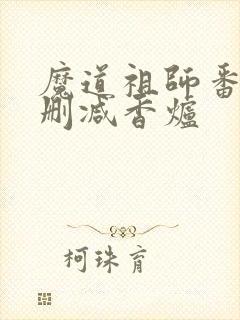 魔道祖師番
刪减香爐
柯珠育